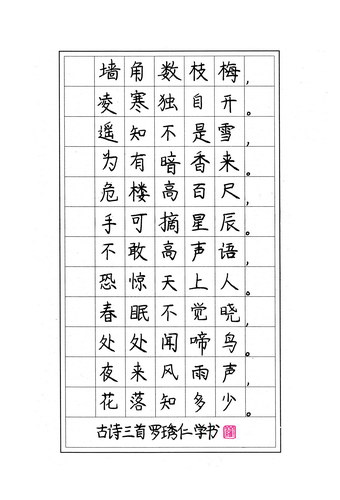 墙角数枝梅，
凌寒独自开。
遥知不是雪，
为有暗香来。
危楼高百尺，
手可摘星辰。
不敢高声语，
恐惊天上人。
春眠不觉晓，
处处闻啼鸟。
夜来风雨声，
花落知多少。
古诗三首罗琇仁学书